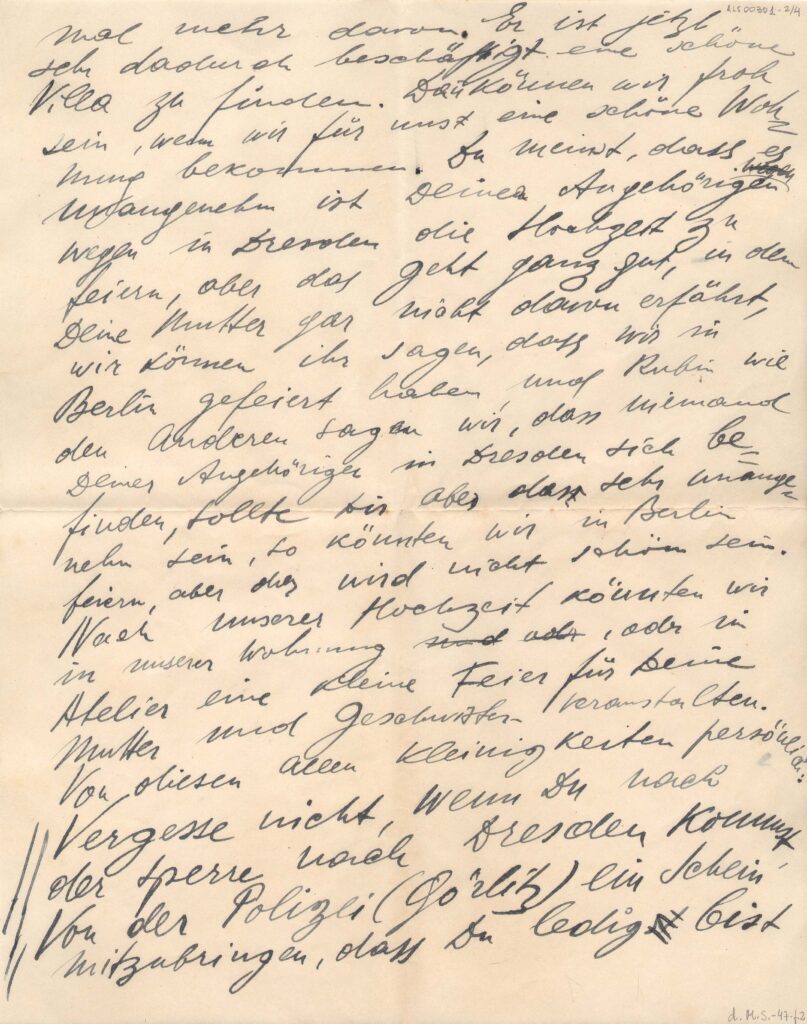 ALS00301-2/4
mal mehr davon. Er ist jetzt
sehr dadurch beschäftigt eine schöne
Villa zu finden. Dan̄ können wir froh
sein, wenn wir für unst eine schöne Woh=
nung bekommen. Du meinst, dass es
unangenehm ist Deinen Angehörigen
wegen in Dresden die Hochzeit zu
feiern, aber das geht ganz gut, in dem
Deine Mutter gar nicht davon erfährt,
wir können ihr sagen, dass wir in
Berlin gefeiert haben und Rubin wie
den Anderen sagen wir, dass niemand
Deiner Angehörigen in Dresden sich be=
finden, sollte Dir aber dass sehr unange=
nehm sein, so könnten wir in Berlin
feiern, aber das wird nicht schön sein.
Nach unserer Hochzeit könnten wir
in unserer Wohnung und oder, oder in
Atelier eine kleine Feier für Deine
Mutter und Geschwister veranstalten.
Von diesen allen Kleinigkeiten persönlich.
Vergesse nicht, wenn Du nach
der Sperre nach Dresden kommst,
Von der Polizei (Görlitz) ein Schein
mitzubringen, dass Du ledig bist
d. M.S.-47-f2